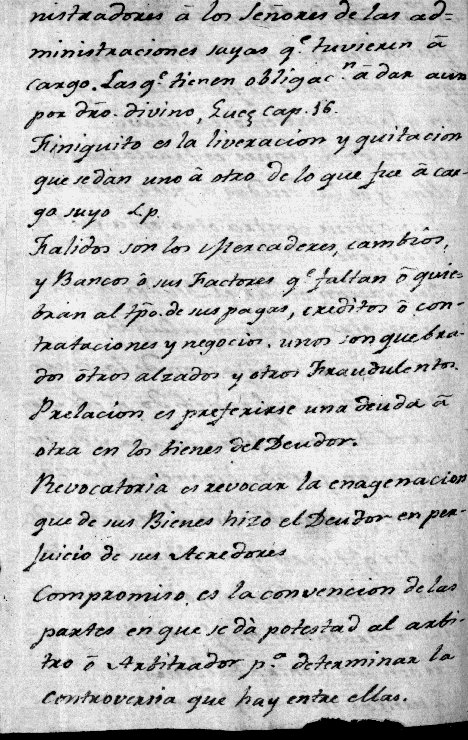 nistradores â los Señores de las ad=
ministraciones suyas q.e tuvieren â
cargo. Las q.e tienen obligac.n â dar aun
por dro. divino, Luc; cap. 16.
Finiquito es la liveracion y quitacion
que se dan uno â otro de lo que fue â car-
go suyo Lp.
Falidos son los Mercaderes, cambios,
y Bancos ô sus Factores q.e faltan ô quie-
bran al tpo. de sus pagas, creditos ô con-
trataciones y negocios. unos son quebra-
dos ôtros alzados y otros Fraudulentos.
Prelacion es preferirse una deuda â
otra en los bienes del Deudor.
Revocatoria es revocar la enagenacion
que de sus Bienes hizo el Deudor en per-
juicio de sus Acredores
Compromiso es la convencion de las
partes en que se dà potestad al arbi-
tro ô Arbitrador p.a determinar la
controversia que hay entre ellas.